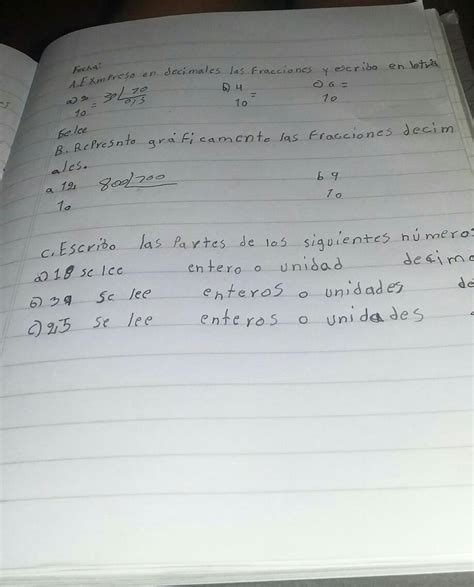 Fecha:
A. Expreso en decimales las fracciones y escribo en letra
a) 3 = 30/10 b) 4 = c) 6 =
10 0,3 10 10
se lee
B. Represnto gráficamente las fracciones decim
ales.
a 12 b 9
10 10
C. Escribo las partes de los siguientes número:
a) 1,8 se lee entero o unidad decima
b) 39 se lee enteros o unidades de
c) 2,5 se lee enteros o unidades